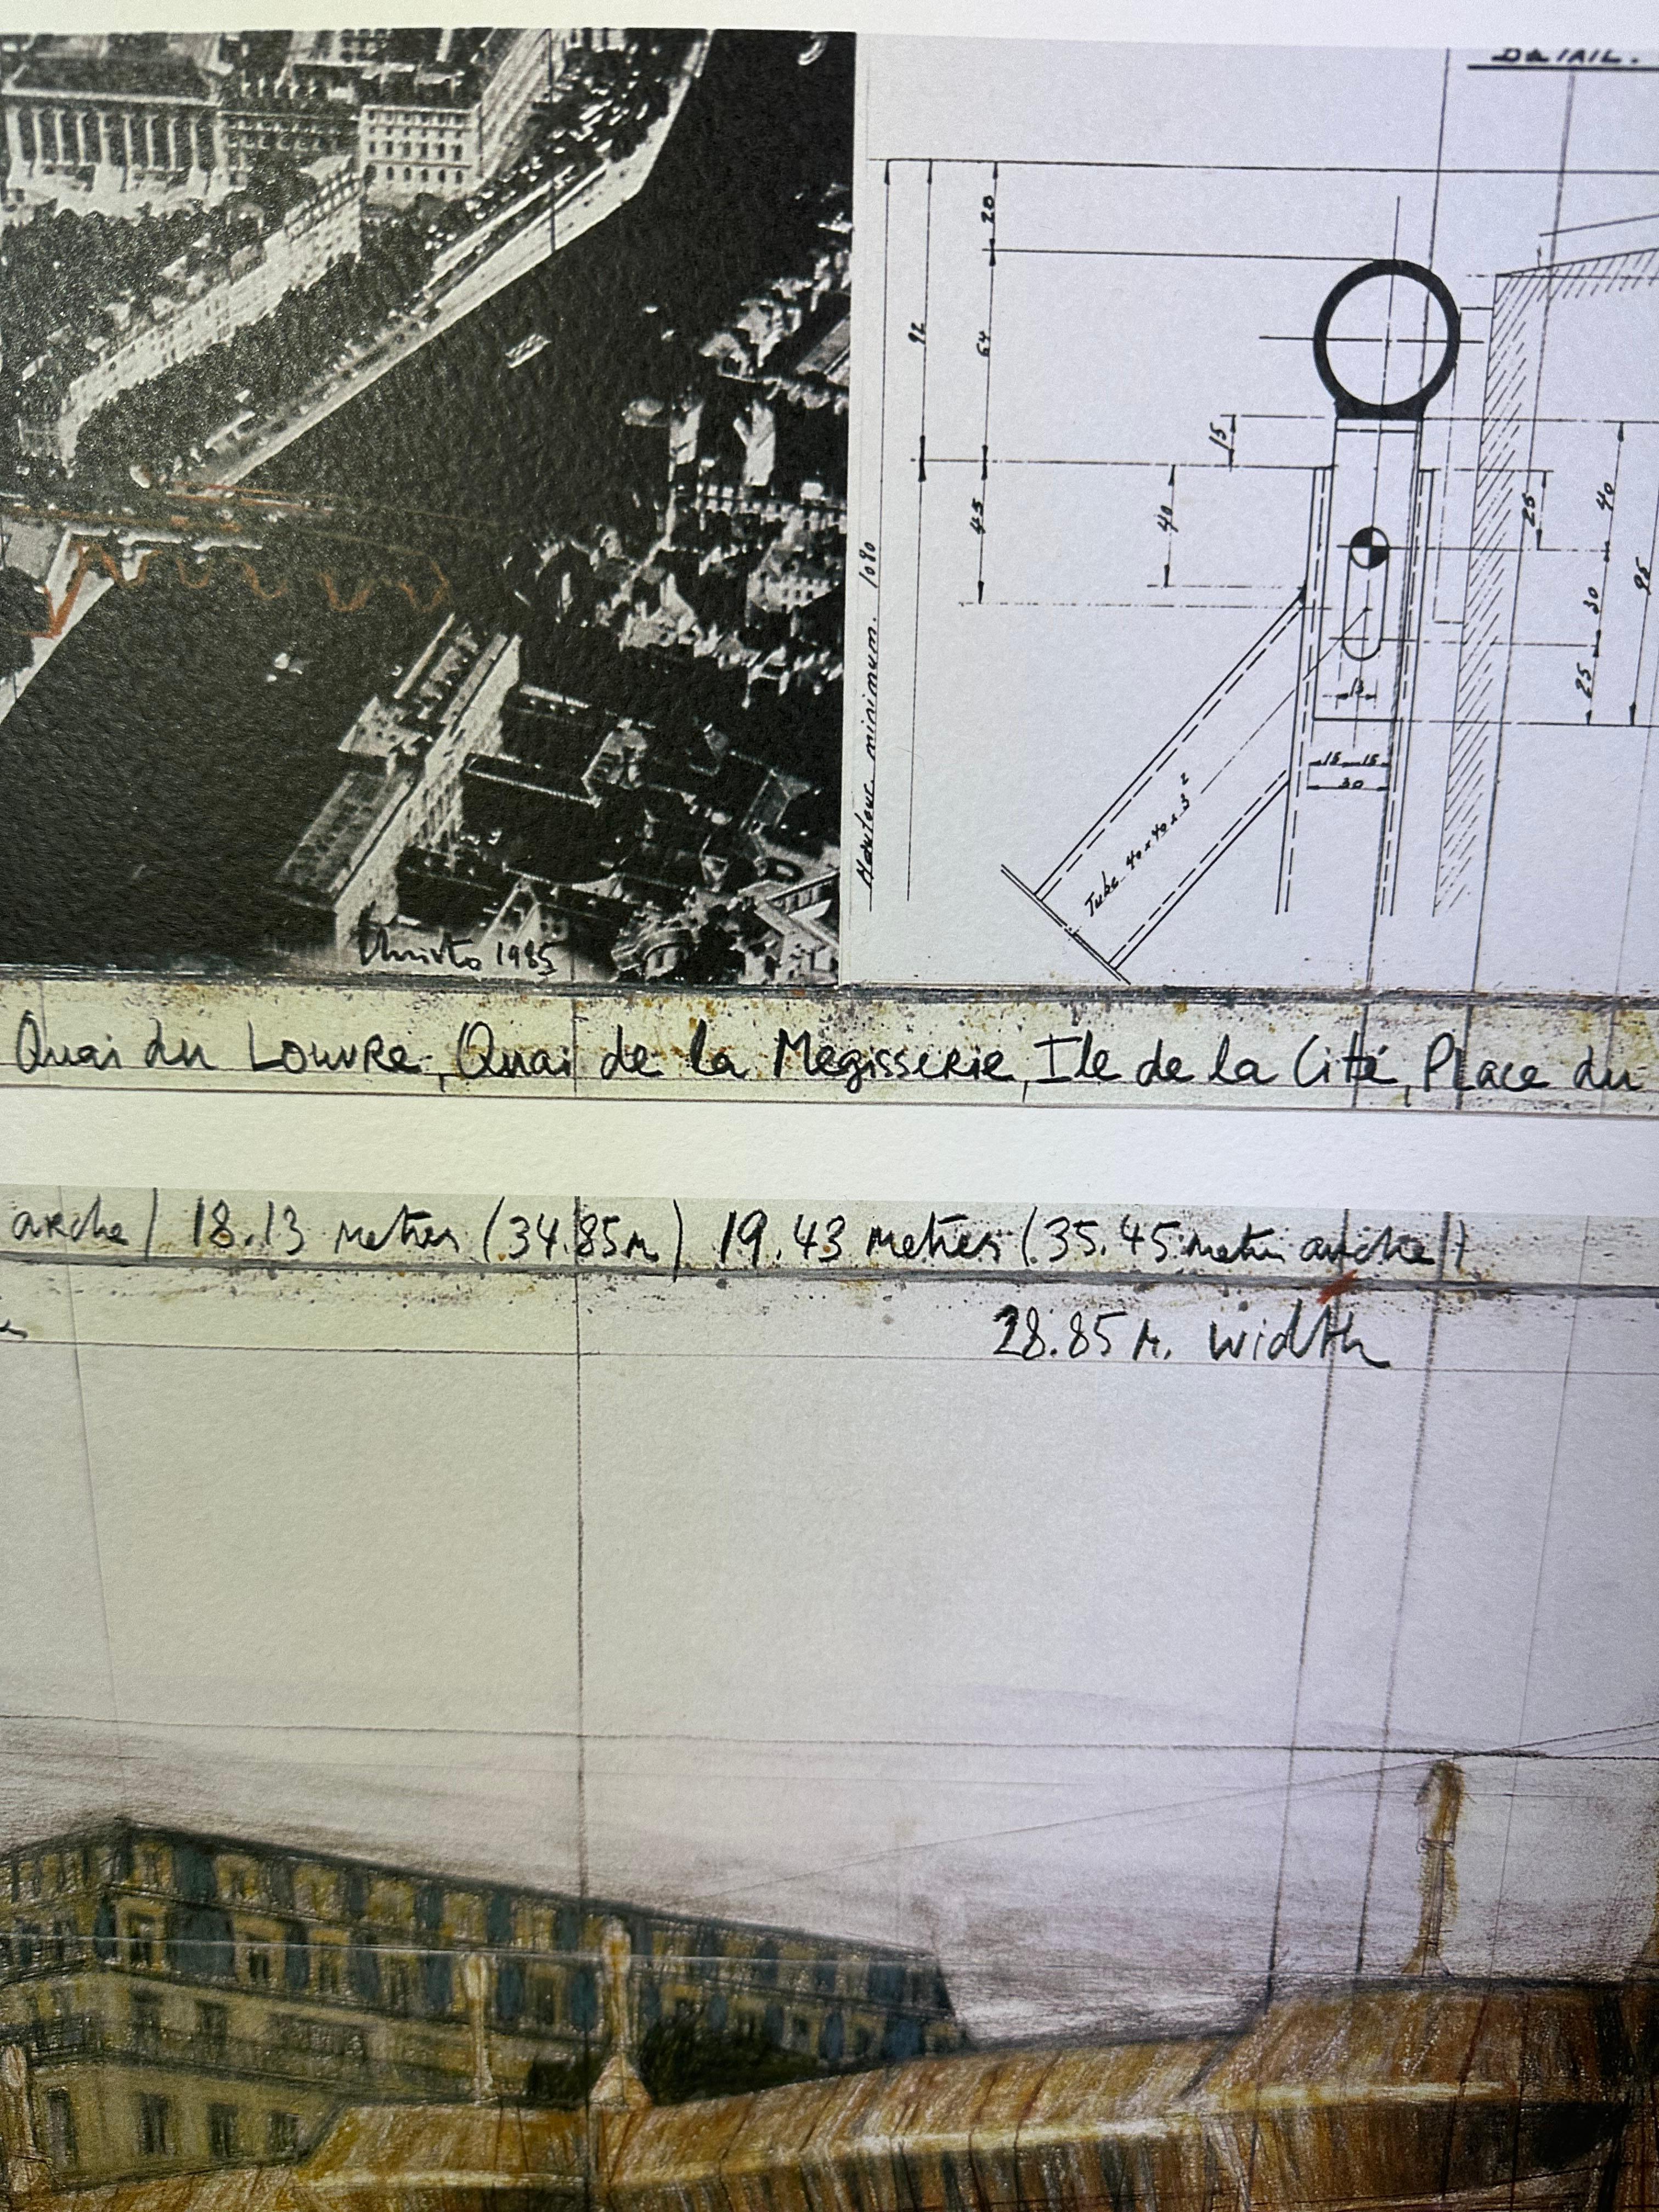 DETAIL.
20
92
64
15
45
40
25
40
30
95
25
13
15 15
30
Hauteur minimum. 1090
Tube 40 x 40 x 3 2
Christo 1985
Quai du Louvre, Quai de la Megisserie, Ile de la Cité, Place du
arche) 18.13 metres (34.85m) 19.43 metres (35.45 metres arche)
28.85 M. width